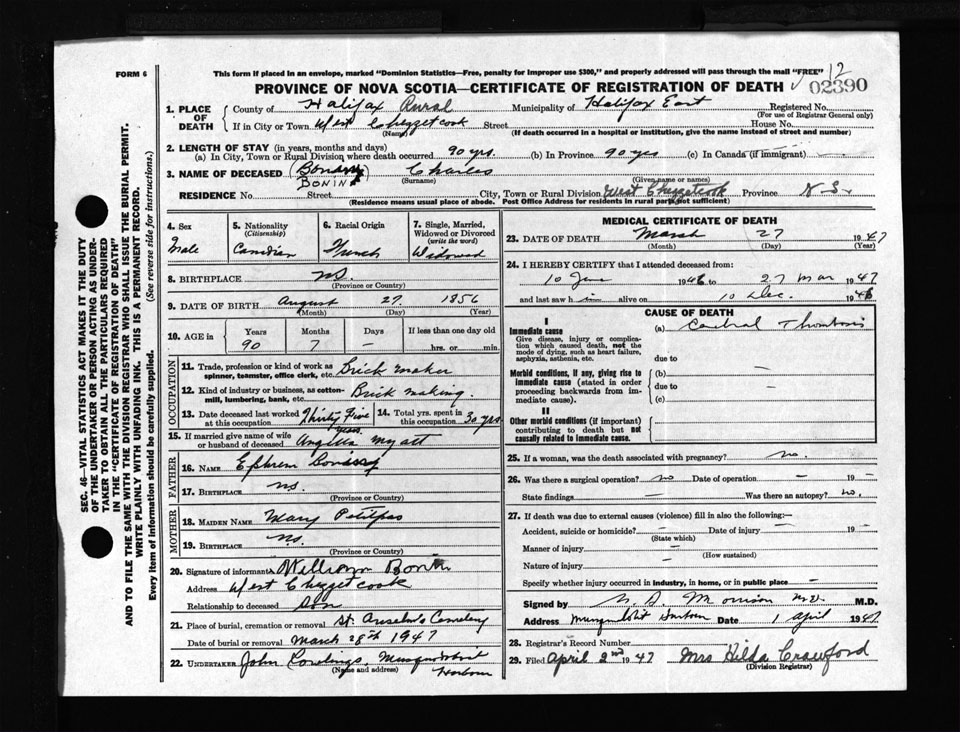 FORM 6
This form if placed in an envelope, marked "Dominion Statistics—Free, penalty for improper use $300," and properly addressed will pass through the mail "FREE"
12
PROVINCE OF NOVA SCOTIA—CERTIFICATE OF REGISTRATION OF DEATH
02390
1. PLACE OF DEATH
County of Halifax Rural Municipality of Halifax East Registered No.
(For use of Registrar General only)
If in City or Town West Chezzetcook Street House No.
(Name) (If death occurred in a hospital or institution, give the name instead of street and number)
2. LENGTH OF STAY (in years, months and days)
(a) In City, Town or Rural Division where death occurred 90 yrs. (b) In Province 90 yrs (c) In Canada (if immigrant) —
3. NAME OF DECEASED BONIN Charles
(Surname) (Given name or names)
RESIDENCE No. Street City, Town or Rural Division West Chezzetcook Province N S
(Residence means usual place of abode. Post Office Address for residents in rural parts not sufficient)
4. Sex Male
5. Nationality (Citizenship) Canadian
6. Racial Origin French
7. Single, Married, Widowed or Divorced (write the word) Widowed
8. BIRTHPLACE NS
(Province or Country)
9. DATE OF BIRTH August 27 1856
(Month) (Day) (Year)
10. AGE in Years 90 Months 7 Days — If less than one day old hrs. or min.
OCCUPATION
11. Trade, profession or kind of work as spinner, teamster, office clerk, etc. Brick maker
12. Kind of industry or business, as cotton-mill, lumbering, bank, etc. Brick making.
13. Date deceased last worked at this occupation Thirty Five years
14. Total yrs. spent in this occupation 30 yrs
15. If married give name of wife or husband of deceased Myatt
FATHER
16. NAME Ephrem
17. BIRTHPLACE NS.
(Province or Country)
MOTHER
18. MAIDEN NAME Mary Petitpas
19. BIRTHPLACE NS.
(Province or Country)
20. Signature of informant William Bonin
Address West Chezzetcook
Relationship to deceased Son
21. Place of burial, cremation or removal St. Anselm's Cemetery
Date of burial or removal March 28th 1947
22. UNDERTAKER John Rowlings, Musquodoboit Harbour
(Name and address)
MEDICAL CERTIFICATE OF DEATH
23. DATE OF DEATH March 27 1947
(Month) (Day) (Year)
24. I HEREBY CERTIFY that I attended deceased from:
10 1946 to 27 Mar 1947
and last saw him alive on 10 Dec. 1946
CAUSE OF DEATH
I
Immediate cause
Give disease, injury or complication which caused death, not the mode of dying, such as heart failure, asphyxia, asthenia, etc.
(a) Cerebral Thrombosis
due to
Morbid conditions, if any, giving rise to immediate cause (stated in order proceeding backwards from immediate cause).
(b) —
due to —
(c)
II
Other morbid conditions (if important) contributing to death but not causally related to immediate cause.
25. If a woman, was the death associated with pregnancy? no.
26. Was there a surgical operation? no Date of operation — 19 —
State findings — Was there an autopsy? no.
27. If death was due to external causes (violence) fill in also the following:—
Accident, suicide or homicide? — Date of injury — 19
(State which)
Manner of injury —
(How sustained)
Nature of injury —
Specify whether injury occurred in industry, in home, or in public place —
Signed by Morrison M.D. M.D.
Address Musquodoboit Harbour Date 1 April 1947
28. Registrar's Record Number
29. Filed April 2nd 1947 Mrs Hilda Crawford
(Division Registrar)
SEC. 46—VITAL STATISTICS ACT MAKES IT THE DUTY
OF THE UNDERTAKER OR PERSON ACTING AS UNDER-
TAKER TO OBTAIN ALL THE PARTICULARS REQUIRED
IN THE "CERTIFICATE OF REGISTRATION OF DEATH"
AND TO FILE THE SAME WITH THE DIVISION REGISTRAR WHO SHALL ISSUE THE BURIAL PERMIT.
WRITE PLAINLY WITH UNFADING INK. THIS IS A PERMANENT RECORD.
Every item of information should be carefully supplied. (See reverse side for instructions.)